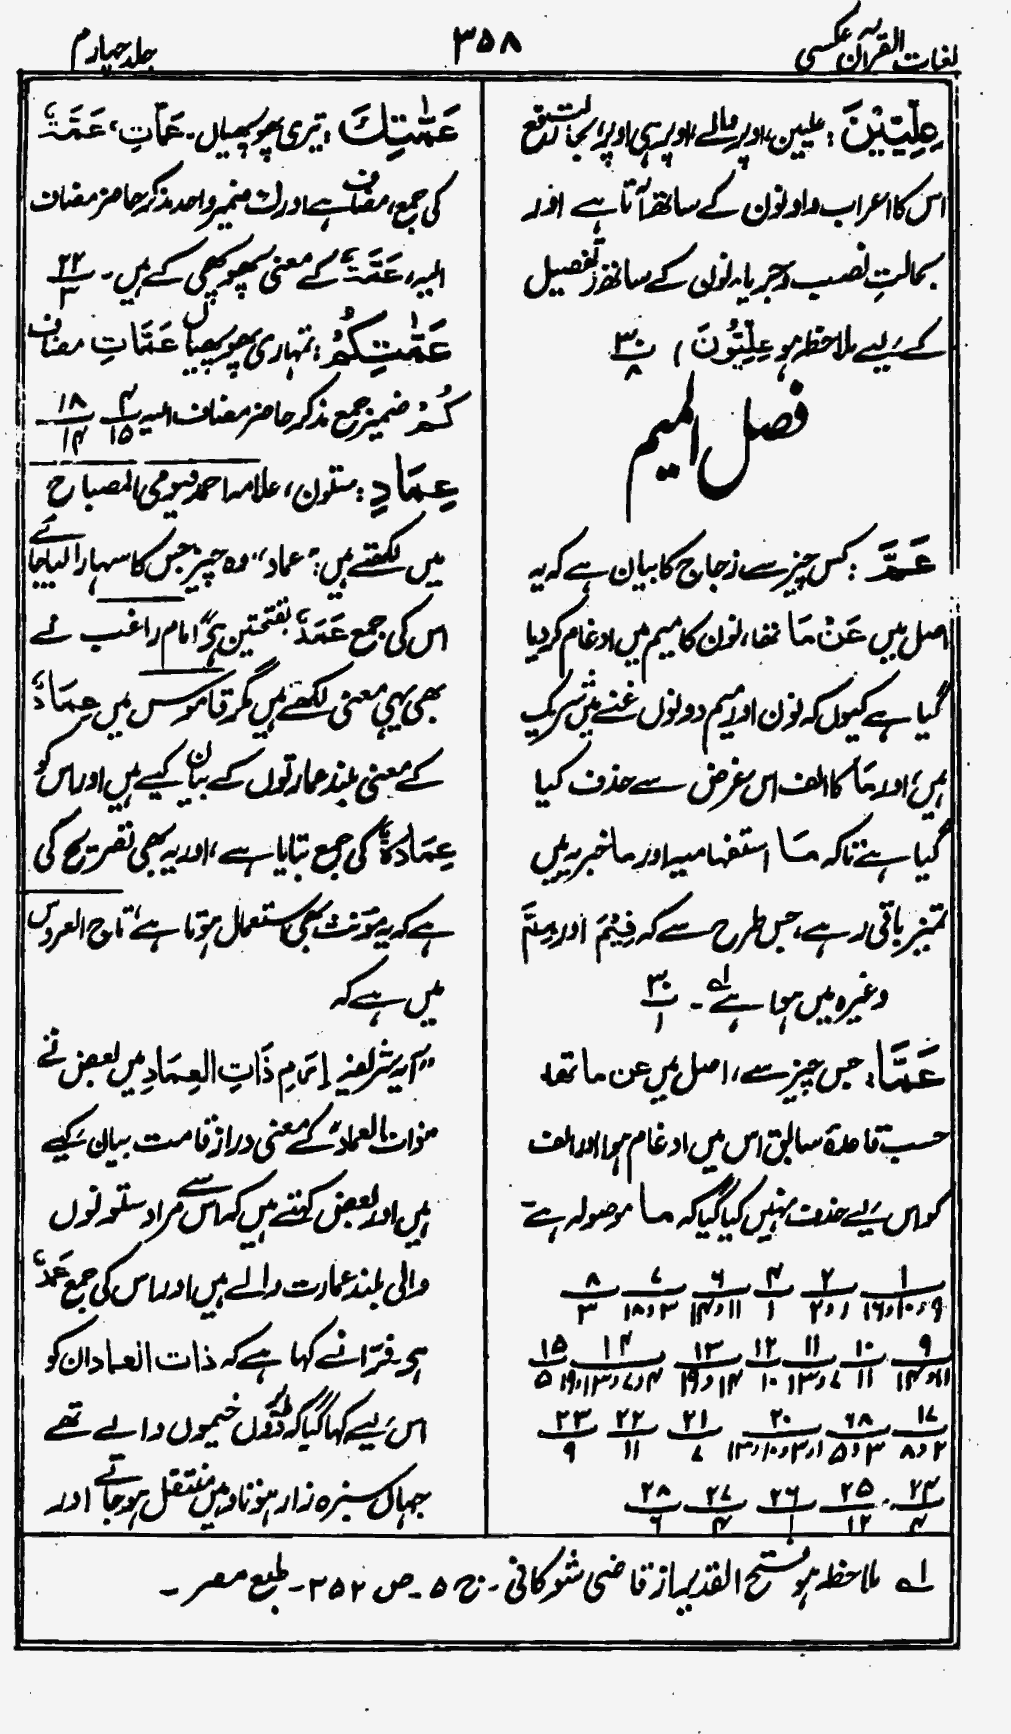 لغات القرآن عکسی
۳۵۸
جلد چہارم
عِلِّیِّیْنَ: علیین، اوپر والے، اوپر ہی اوپر، بحالت رفع
اس کا اعراب واو نون کے ساتھ آتا ہے اور
بحالتِ نصب و جر یا، نون کے ساتھ (تفصیل
کے لیے ملاحظہ ہو عِلِّیُّوْنَ) ۳۰/۸
فصل المیم
عَمَّ: کس چیز سے زجاج کا بیان ہے کہ یہ
اصل میں عَنْ مَا تھا، نون کا میم میں ادغام کر دیا
گیا ہے کیوں کہ نون اور میم دونوں غنے میں شریک
ہیں، اور مَا کا الف اس غرض سے حذف کیا
گیا ہے تاکہ مَا استفہامیہ اور ما خبریہ میں
تمیز باقی رہے، جس طرح سے کہ فِیْمَ اور مِمَّ
وغیرہ میں ہوا ہے لہ۔ ۳۰/۱
عَمَّا: جس چیز سے، اصل میں عن ما تھا
حسب قاعدہ سابق اس میں ادغام ہوا اور الف
کو اس لیے حذف نہیں کیا گیا کہ ما موصولہ ہے
۱/۹و۱۰و۱۶ ۲/۱و۲ ۴/۱ ۶/۱۱و۱۴ ۷/۳و۱۸ ۸/۳
۹/۱۱و۱۴ ۱۰/۱۱ ۱۱/۷و۱۳ ۱۲/۱۰ ۱۳/۱۴و۱۹ ۱۴/۴و۷و۱۳و۱۹ ۱۵/۵
۱۷/۲و۸ ۱۸/۳و۵ ۲۰/۱و۳و۱۰و۱۳ ۲۱/۷ ۲۲/۱۱ ۲۳/۹
۲۴/۴ ۲۵/۱۲ ۲۶/۱ ۲۷/۴ ۲۸/۶
عَمّٰتِكَ: تیری پھوپھیاں۔ عَمَّاتِ، عَمَّةٌ
کی جمع، مضاف ہے اور ك ضمیر واحد مذکر حاضر مضاف
الیہ، عَمَّةٌ کے معنی پھوپھی کے ہیں۔ ۲۲/۳
عَمّٰتِكُمْ: تمہاری پھوپھیاں عَمَّاتِ مضاف
كُمْ ضمیر جمع مذکر حاضر مضاف الیہ ۴/۱۵ ۱۸/۱۴
عِمَادِ: ستون، علامہ احمد فیومی المصباح
میں لکھتے ہیں: "عماد" وہ چیز جس کا سہارا لیا جائے
اس کی جمع عَمَدٌ بفتحتین ہے" امام راغب نے
بھی یہی معنی لکھے ہیں مگر قاموس میں عِمَادٌ
کے معنی بلند عمارتوں کے بیان کیے ہیں اور اس کو
عِمَادَةٌ کی جمع بتایا ہے، اور یہ بھی تصریح کی
ہے کہ یہ مؤنث بھی استعمال ہوتا ہے، تاج العروس
میں ہے کہ
"آیہ شریفہ إِرَمَ ذَاتِ الْعِمَادِ میں بعض نے
"ذات العماد" کے معنی دراز قامت بیان کیے
ہیں اور بعض کہتے ہیں کہ اس سے مراد ستونوں
والی بلند عمارت والے ہیں اور اس کی جمع عَمَدٌ
ہے۔ فرّا نے کہا ہے کہ ذات العماد ان کو
اس لیے کہا گیا کہ وہ لوگ خیموں والے تھے
جہاں سبزہ زار ہوتا وہیں منتقل ہو جاتے اور
لہ ملاحظہ ہو فتح القدیر از قاضی شوکانی۔ ج ۵۔ ص ۳۵۲۔ طبع مصر۔